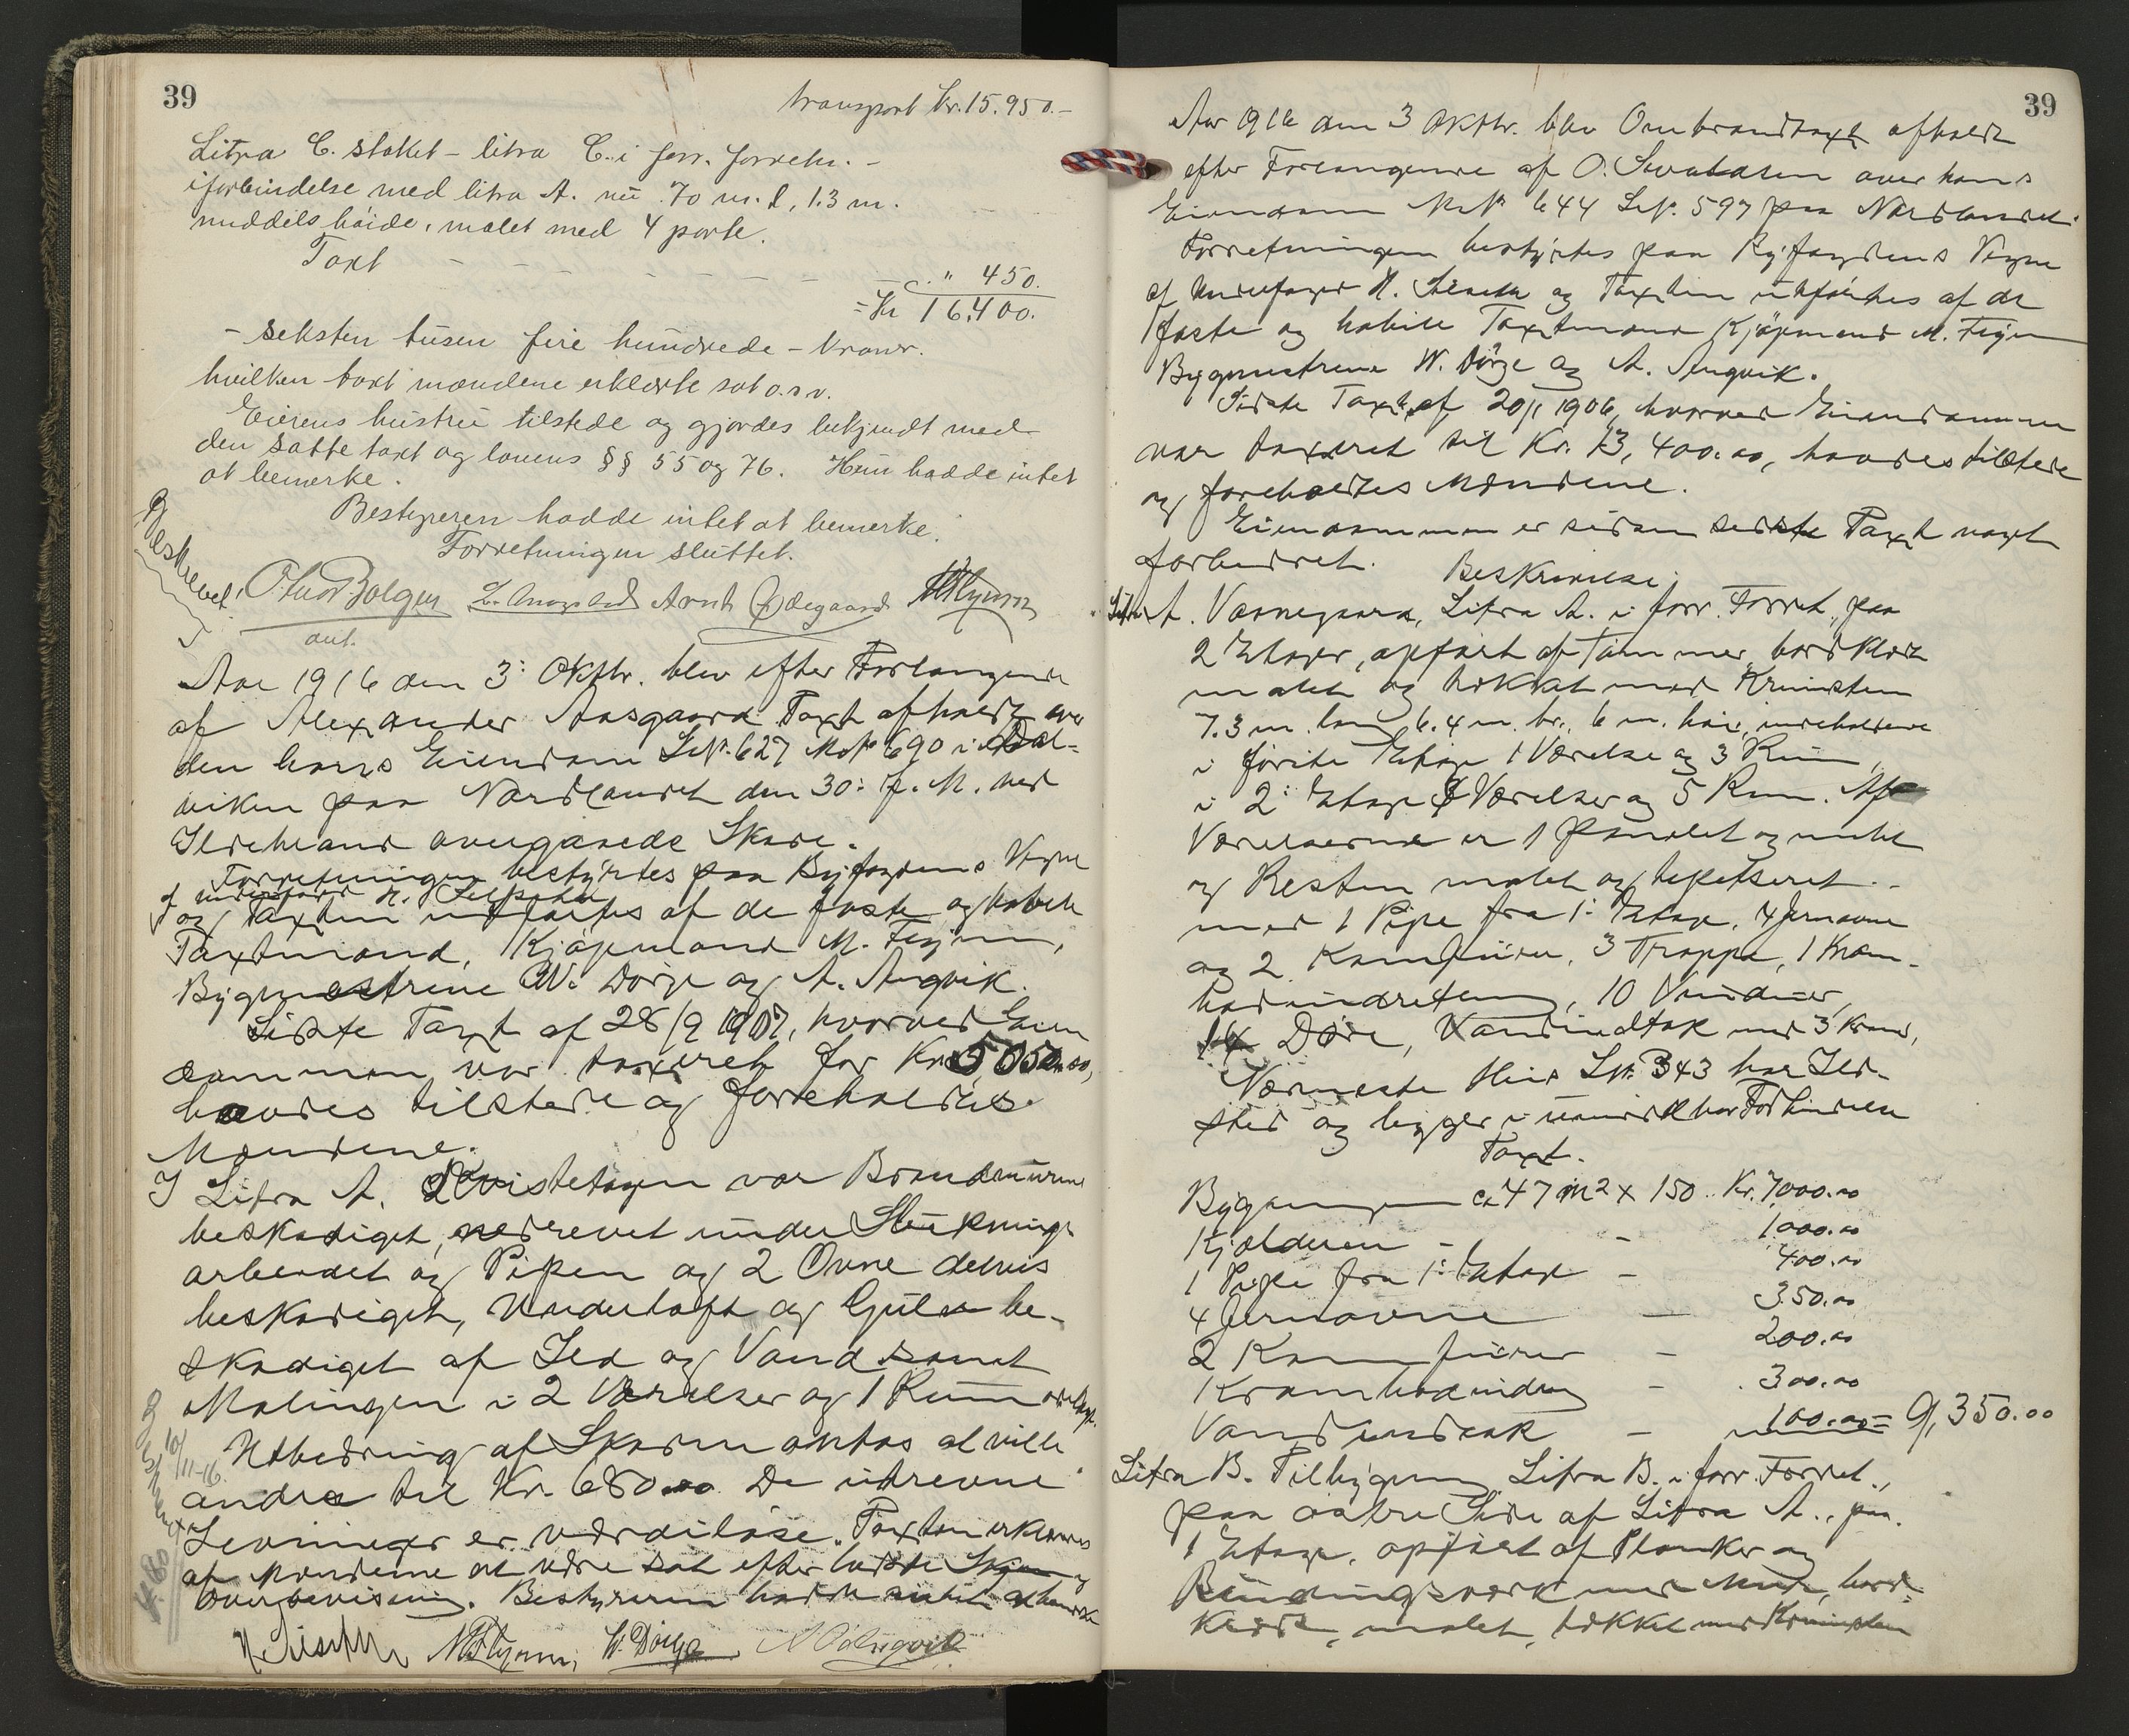 39
transport kr. 15.950.-
Litra C. staket - litra C. i forr. forretn. -
i forbindelse med litra A. nu 70 m. l, 1.3 m.
middels høide, malet med 4 porte.
Taxt - - - - - - - " 450.
= Kr 16.400.
- seksten tusen fire hundrede - kroner.
hvilken taxt mændene erklærte sat o.s.v.
Eierens hustru tilstede og gjordes bekjendt med
den satte taxt og lovens §§ 55 og 76. Hun hadde intet
at bemerke.
Bestyreren hadde intet at bemerke.
Forretningen sluttet.
Beskrevet,
Arnt Ødegaard
aut.
Aar 1916 den 3: Oktbr. blev efter Forlangende
af Alexander Aasgaard Taxt afholdt over
den hans Eiendom LNr. 627 MNr 690 i Dal-
viken paa Nordlandet den 30: f. M. ved
Ildebrand overgaaede Skade.
Forretningen bestyrtes paa Byfogdens Vegne
af underfoged H.
og Taxten utførtes af de faste og habile
Taxtmænd, Kjøpmand M. Flygum,
Bygmestrene W. Dørge og A. Angvik.
Sidste Taxt af 28/9 1907, hvorved Eien
dommen var taxeret for Kr. 5050.00,
havdes tilstede og foreholdtes
Mændene.
I Litra A. Kvistetagen var Brandmuren
beskadiget, nedrevet under Sluknings
arbeidet og Pipen og 2 Ovne delvis
beskadiget, Underloft og Gulv be-
skadiget af Ild og Vand samt
Malingen i 2 Værelser og 1 Rum
Utbedring af Skaden antas at ville
andra til Kr. 680.00 De utrevne
Levninger er værdiløse. Taxten erklæres
af Mændene at være sat efter bedste Skjøn og
Overbevisning. Bestyreren hadde intet at bemerke
10/11-16.
Kr. 680
W. Dørge
39
Aar 1916 den 3 Oktbr. blev Ombrandtaxt afholdt
efter Forlangende af O. over hans
Eiendom MNr. 644 LNr. 597 paa Nordlandet.
Forretningen bestyrtes paa Byfogdens Vegne
af Underfoged H. og Taxten utførtes af de
faste og habile Taxtmænd Kjøpmand M. Flygum
Bygmestrene W. Dørge og A. Angvik.
Sidste Taxt af 20/1 1906, hvorved Eiendommen
var taxeret til Kr. 13,400.00, havdes tilstede
og foreholdtes Mændene.
Eiendommen er siden sidste Taxt noget
forbedret. Beskrivelse:
Litra A. Vaaningsaard, Litra A. i forr. Forret., paa
2 Etager, opført af Tømmer, bordklædt
malet og tækket med Krumsten
7.3 m. lang 6.4 m. br., 6 m. høi, indeholdende
i første Etage 1 Værelse og 3 Rum,
i 2: Etage Værelser og 5 Rum. Af
Værelserne er 1 panelet og malet
og Resten malet og tapetseret. -
med 1 Pipe fra 1: Etage, 4 Jernovne
og 2 Komfurer, 3 Trappe, 1 Kram-
bodindretning, 10 Vinduer,
14 Døre, Vandindtak med 3 Kraner,
Nærmeste Hus LNr. 343 har Ild-
sted og ligger i umiddelbar Forbindelse
Taxt.
Bygningen ca 47 m2 x 150 .. Kr. 7000.00
Kjælderen - - 1000.00
1 Pipe fra 1: Etage - 400.00
4 Jernovne - 350.00
2 Komfurer - 200.00
Krambodindretn. - 300.00
Vandindtak - 100.00 = 9,350.00
Litra B. Tilbygning Litra B. i forr. Forret.,
paa østre Side af Litra A., paa
1 Etage, opført af Planker og
Bindingsværk med Mur, bord-
klædt, malet, tækket med Krumsten